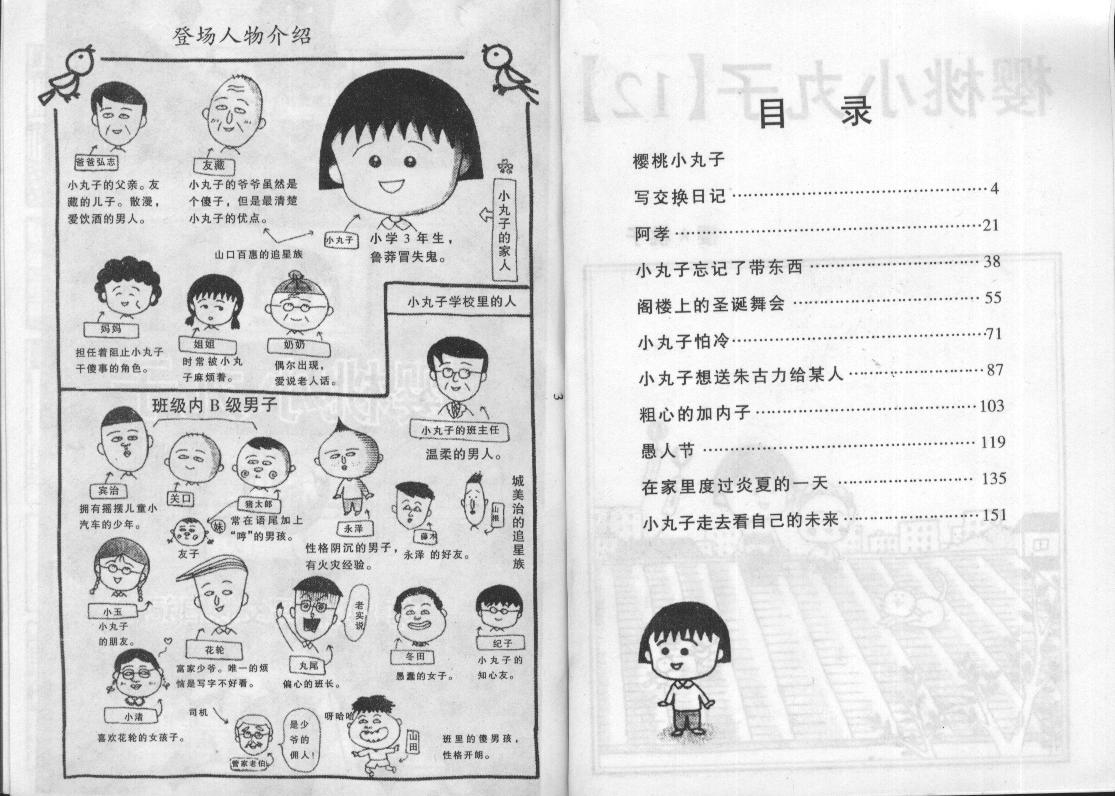 登场人物介绍
爸爸弘志
小丸子的父亲。友
藏的儿子。散漫，
爱饮酒的男人。
友藏
小丸子的爷爷虽然是
个傻子，但是最清楚
小丸子的优点。
山口百惠的追星族
小丸子
小学3年生，
鲁莽冒失鬼。
小丸子的家人
妈妈
担任着阻止小丸子
干傻事的角色。
姐姐
时常被小丸
子麻烦着。
奶奶
偶尔出现，
爱说老人话。
小丸子学校里的人
小丸子的班主任
温柔的男人。
班级内B级男子
宾治
拥有摇摆儿童小
汽车的少年。
关口
猪太郎
常在语尾加上
“哼”的男孩。
妹
友子
永泽
性格阴沉的男子，
有火灾经验。
藤木
永泽的好友。
山根
城美治的追星族
小玉
小丸子
的朋友。
花轮
富家少爷。唯一的烦
恼是写字不好看。
丸尾
偏心的班长。
老实说
冬田
愚蠢的女子。
纪子
小丸子的
知心友。
小渚
喜欢花轮的女孩子。
司机
管家老伯
是少
爷的
佣人！
呀哈哈
山田
班里的傻男孩，
性格开朗。
3
目 录
樱桃小丸子
写交换日记……………………………4
阿孝……………………………21
小丸子忘记了带东西……………………………38
阁楼上的圣诞舞会……………………………55
小丸子怕冷……………………………71
小丸子想送朱古力给某人……………………………87
粗心的加内子……………………………103
愚人节……………………………119
在家里度过炎夏的一天……………………………135
小丸子走去看自己的未来……………………………151
樱桃小丸子【12】